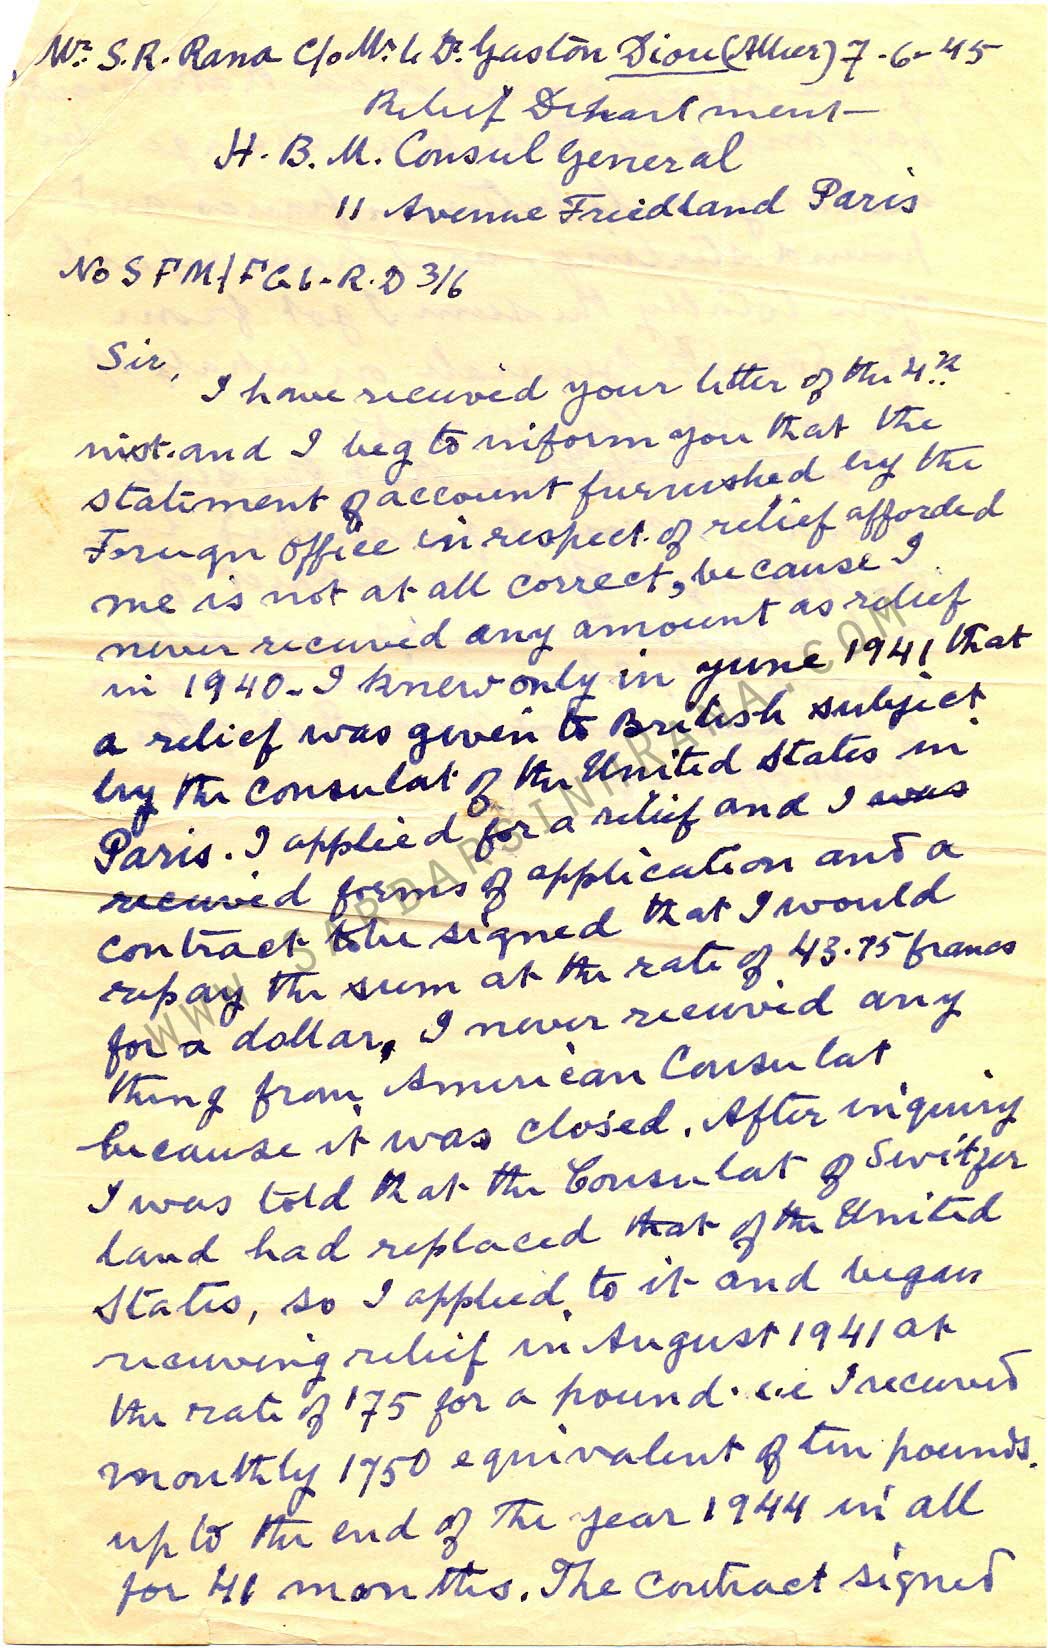 Mr S.R. Rana C/o Mr le Dr Gaston Diou (Allier) 7-6-45
Relief Department
H. B. M. Consul General
11 Avenue Friedland Paris
No S F M/FG6-R.D 3/6
Sir,
I have received your letter of the 4th
inst. and I beg to inform you that the
statement of account furnished by the
Foreign Office in respect of relief afforded
me is not at all correct, because I
never received any amount as relief
in 1940 - I knew only in june 1941 that
a relief was given to British subject
by the Consulat of the United States in
Paris. I applied for a relief and I was
received forms of application and a
contract to be signed that I would
repay the sum at the rate of 43.75 francs
for a dollar, I never received any
thing from American Consulat
because it was closed. After inquiry
I was told that the Consulat of Switzer
land had replaced that of the United
States, so I applied to it and began
receiving relief in August 1941 at
the rate of 175 for a pound. i.e I received
monthly 1750 equivalent of ten pounds.
up to the end of the year 1944 in all
for 41 months. The contract signed
WWW.SARDARSINHRANA.COM